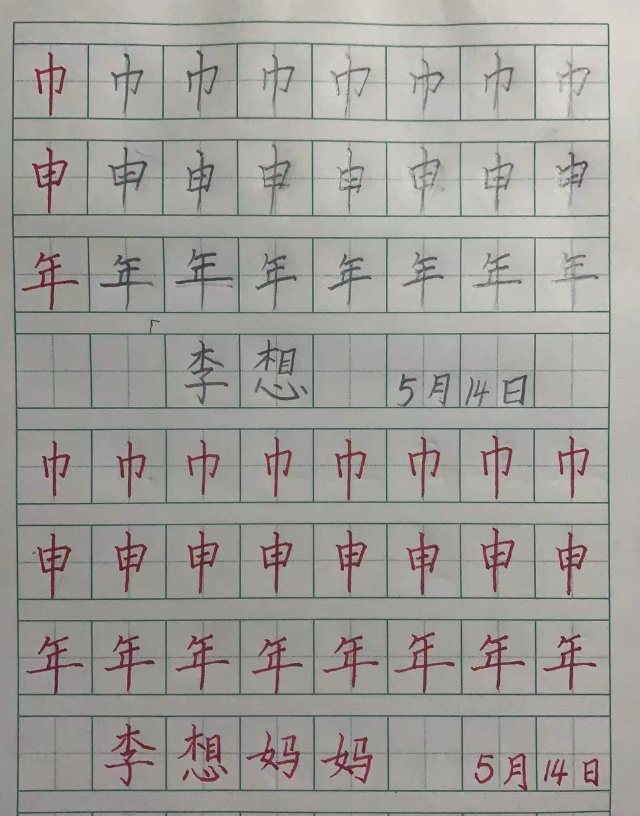 巾巾巾巾巾巾巾巾
申申申申申申申申
年年年年年年年年
李想 5月14日
巾巾巾巾巾巾巾巾
申申申申申申申申
年年年年年年年年
李想妈妈 5月14日